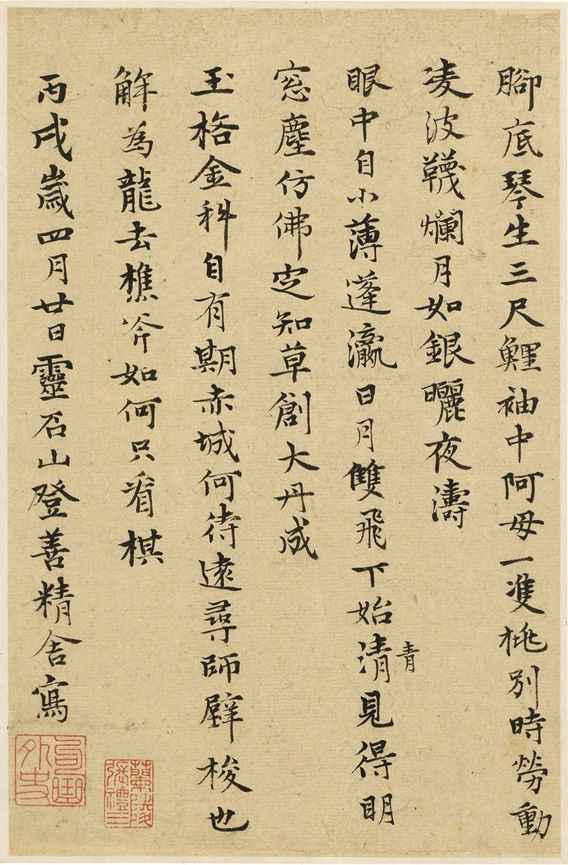 腳底琴生三尺鯉袖中阿母一隻桃別時勞動
凌波韈爛月如銀曬夜濤
眼中自小薄蓬瀛日月雙飛下始清見得明
青
窓塵仿佛定知草創大丹成
玉格金科自有期赤城何待遠尋師壁梭也
解為龍去樵斧如何只看棋
丙戌歲四月廿日靈石山登善精舍寫
句曲外史